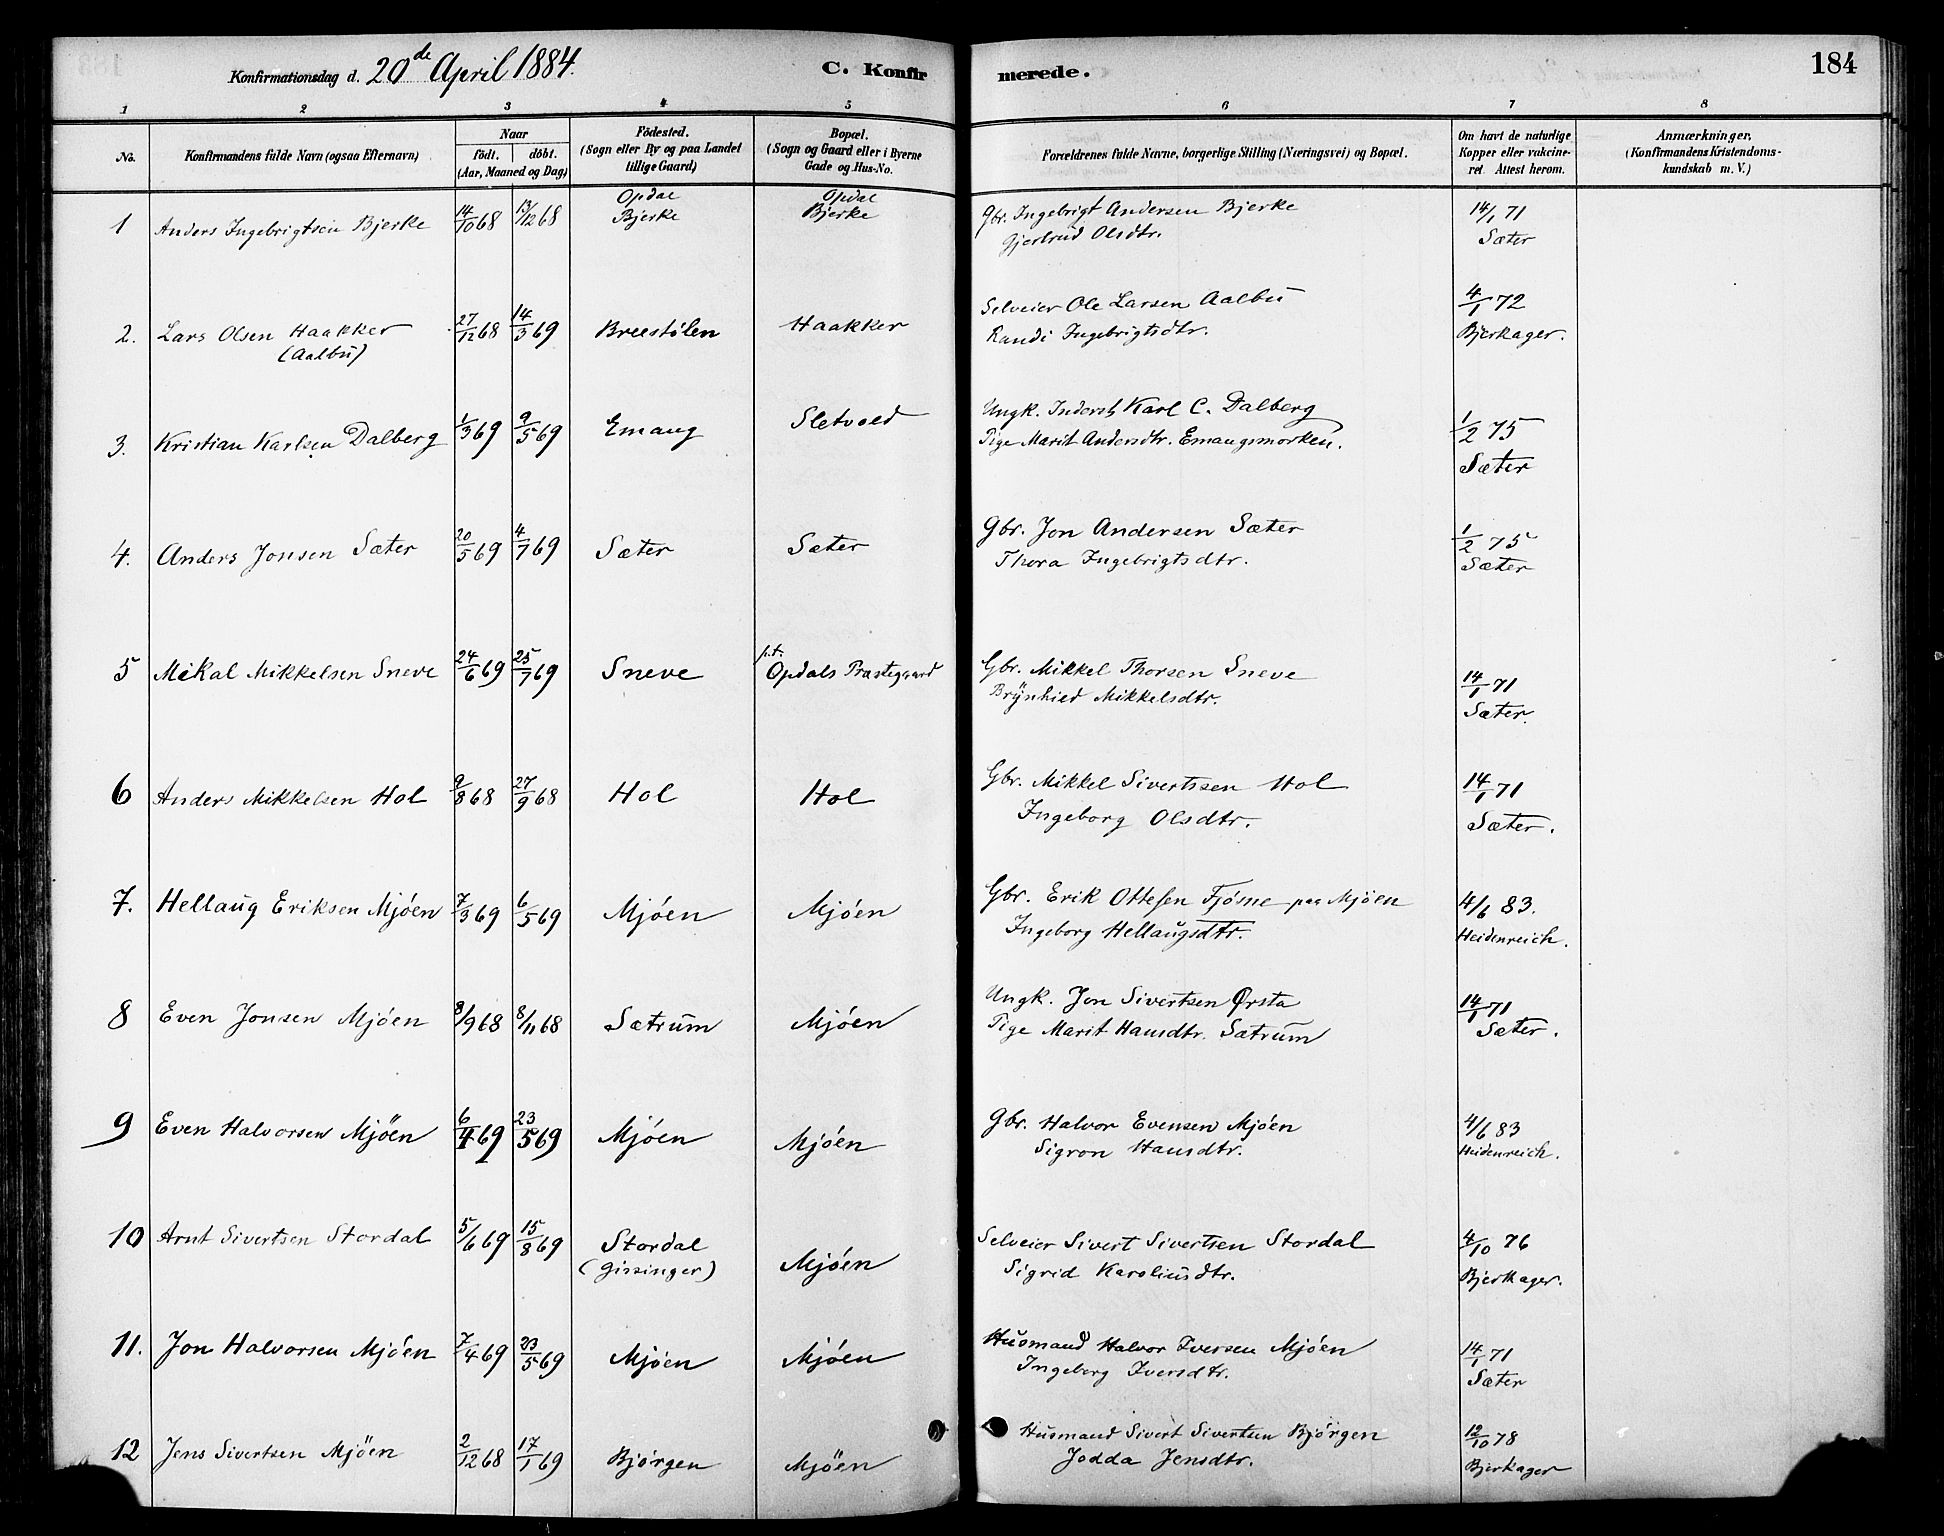 Konfirmationsdag d. 20de April 1884. C. Konfirmerede. 184
1 2 3 4 5 6 7 8
No. Konfirmandens fulde Navn (ogsaa Efternavn) Naar födt. döbt. (Aar, Maaned og Dag) Födested. (Sogn eller By og paa Landet tillige Gaard) Bopæl. (Sogn og Gaard eller i Byerne Gade og Hus-No. Forældrenes fulde Navne, borgerlige Stilling (Næringsvei) og Bopæl. Om havt de naturlige Kopper eller vakcineret. Attest herom. Anmærkninger. (Konfirmandens Kristendomskundskab m. V.)
1 Anders Ingebrigtsen Bjerke 14/10 68 13/12 68 Opdal Bjerke Opdal Bjerke Gbr. Ingebrigt Andersen Bjerke 14/1 71
Gjertrud Olsdtr. Sæter
2. Lars Olsen Haakker 27/12 68 14/3 69 Breestølen Haakker Selveier Ole Larsen Aalbu 4/1 72
(Aalbu) Randi Ingebrigtsdtr. Bjerkager.
3. Kristian Karlsen Dalberg 1/3 69 9/5 69 Emaug Sletvold Ungk. Inderst Karl C. Dalberg 1/2 75
Pige Marit Andersdtr. Emaugsmorken. Sæter
4. Anders Jonsen Sæter 20/5 69 4/7 69 Sæter Sæter Gbr. Jon Andersen Sæter 1/2 75
Thora Ingebrigtsdtr. Sæter
5 Mikal Mikkelsen Sneve 24/6 69 25/7 69 Sneve p.t. Opdals Præstegaard Gbr. Mikkel Thorsen Sneve 14/1 71
Brynhied Mikkelsdtr. Sæter.
6 Anders Mikkelsen Hol 9/8 68 27/9 68 Hol Hol Gbr. Mikkel Sivertssen Hol 14/1 71
Ingeborg Olsdtr. Sæter.
7. Hellaug Eriksen Mjóen 7/3 69 6/5 69 Mjóen Mjóen Gbr. Erik Ottesen Fjósne paa Mjóen 4/6 83.
Ingeborg Hellaugsdtr. Heidenreich.
8 Even Jonsen Mjóen 8/9 68 8/11 68 Sætrum Mjóen Ungk. Jon Sivertsen Ørsta 14/1 71
Pige Marit Hansdtr. Sætrum Sæter.
9 Even Halvorsen Mjöen 6/4 69 23/5 69 Mjóen Mjóen Gbr. Halvor Evensen Mjóen 4/6 83
Sigron Hansdtr. Heidenreich.
10 Arnt Sivertsen Stordal 5/6 69 15/8 69 Stordal Mjóen Selveier Sivert Sivertsen Stordal 4/10 76
(Gissinger) Sigrid Karoliusdtr. Bjerkager.
11. Jon Halvorsen Mjóen 7/4 69 23/5 69 Mjóen Mjóen Husmand Halvor Iversen Mjóen 14/1 71
Ingeborg Iversdtr. Sæter
12 Jens Sivertsen Mjöen 2/12 68 17/1 69 Bjørgen Mjöen Husmand Sivert Sivertsen Bjørgen 12/10 78
Jodda Jensdtr. Bjerkager